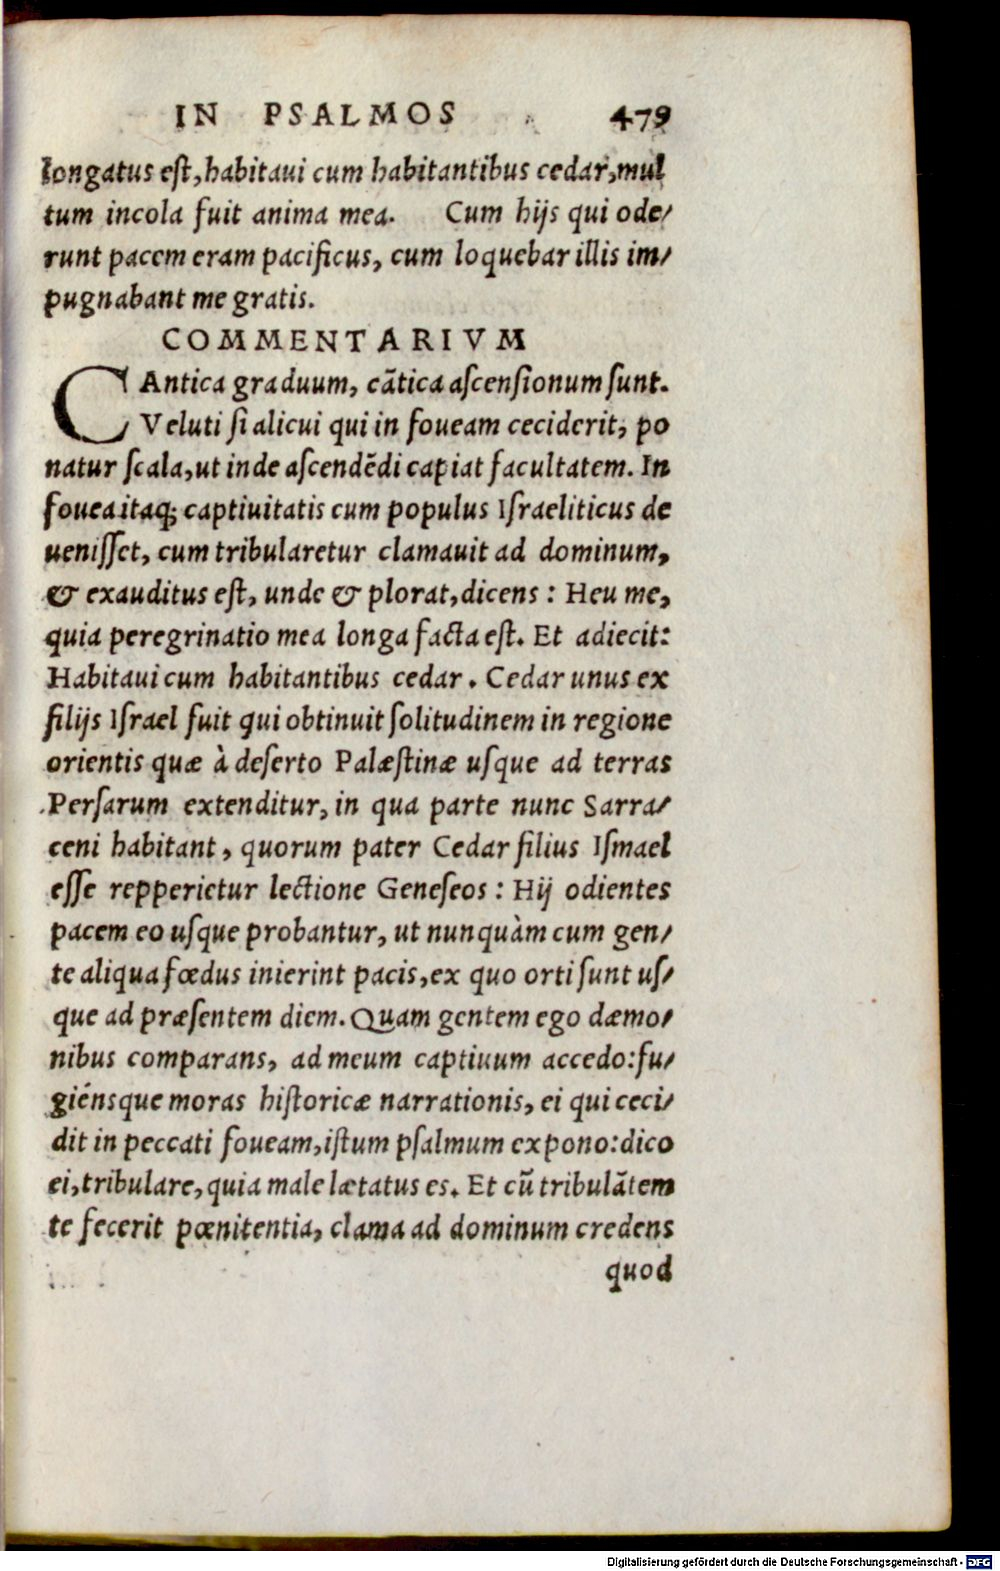 IN PSALMOS 479
longatus eſt, habitaui cum habitantibus cedar, mul
tum incola fuit anima mea. Cum hijs qui ode/
runt pacem eram pacificus, cum loquebar illis im/
pugnabant me gratis.
COMMENTARIVM
CAntica graduum, cātica aſcenſionum ſunt.
Veluti ſi alicui qui in foueam ceciderit, po
natur ſcala, ut inde aſcendēdi capiat facultatem. In
fouea itaq; captiuitatis cum populus Iſraeliticus de
ueniſſet, cum tribularetur clamauit ad dominum,
& exauditus eſt, unde & plorat, dicens : Heu me,
quia peregrinatio mea longa facta eſt. Et adiecit:
Habitaui cum habitantibus cedar. Cedar unus ex
filijs Iſrael fuit qui obtinuit ſolitudinem in regione
orientis quæ à deſerto Palæſtinæ uſque ad terras
Perſarum extenditur, in qua parte nunc Sarra/
ceni habitant, quorum pater Cedar filius Iſmael
eſſe repperietur lectione Geneſeos : Hij odientes
pacem eo uſque probantur, ut nunquàm cum gen/
te aliqua fœdus inierint pacis, ex quo orti ſunt uſ/
que ad præſentem diem. Quam gentem ego dæmo/
nibus comparans, ad meum captiuum accedo: fu/
giénsque moras hiſtoricæ narrationis, ei qui ceci/
dit in peccati foueam, iſtum pſalmum expono: dico
ei, tribulare, quia male lætatus es. Et cū tribulātem
te fecerit pœnitentia, clama ad dominum credens
quod
Digitalisierung gefördert durch die Deutsche Forschungsgemeinschaft - DFG